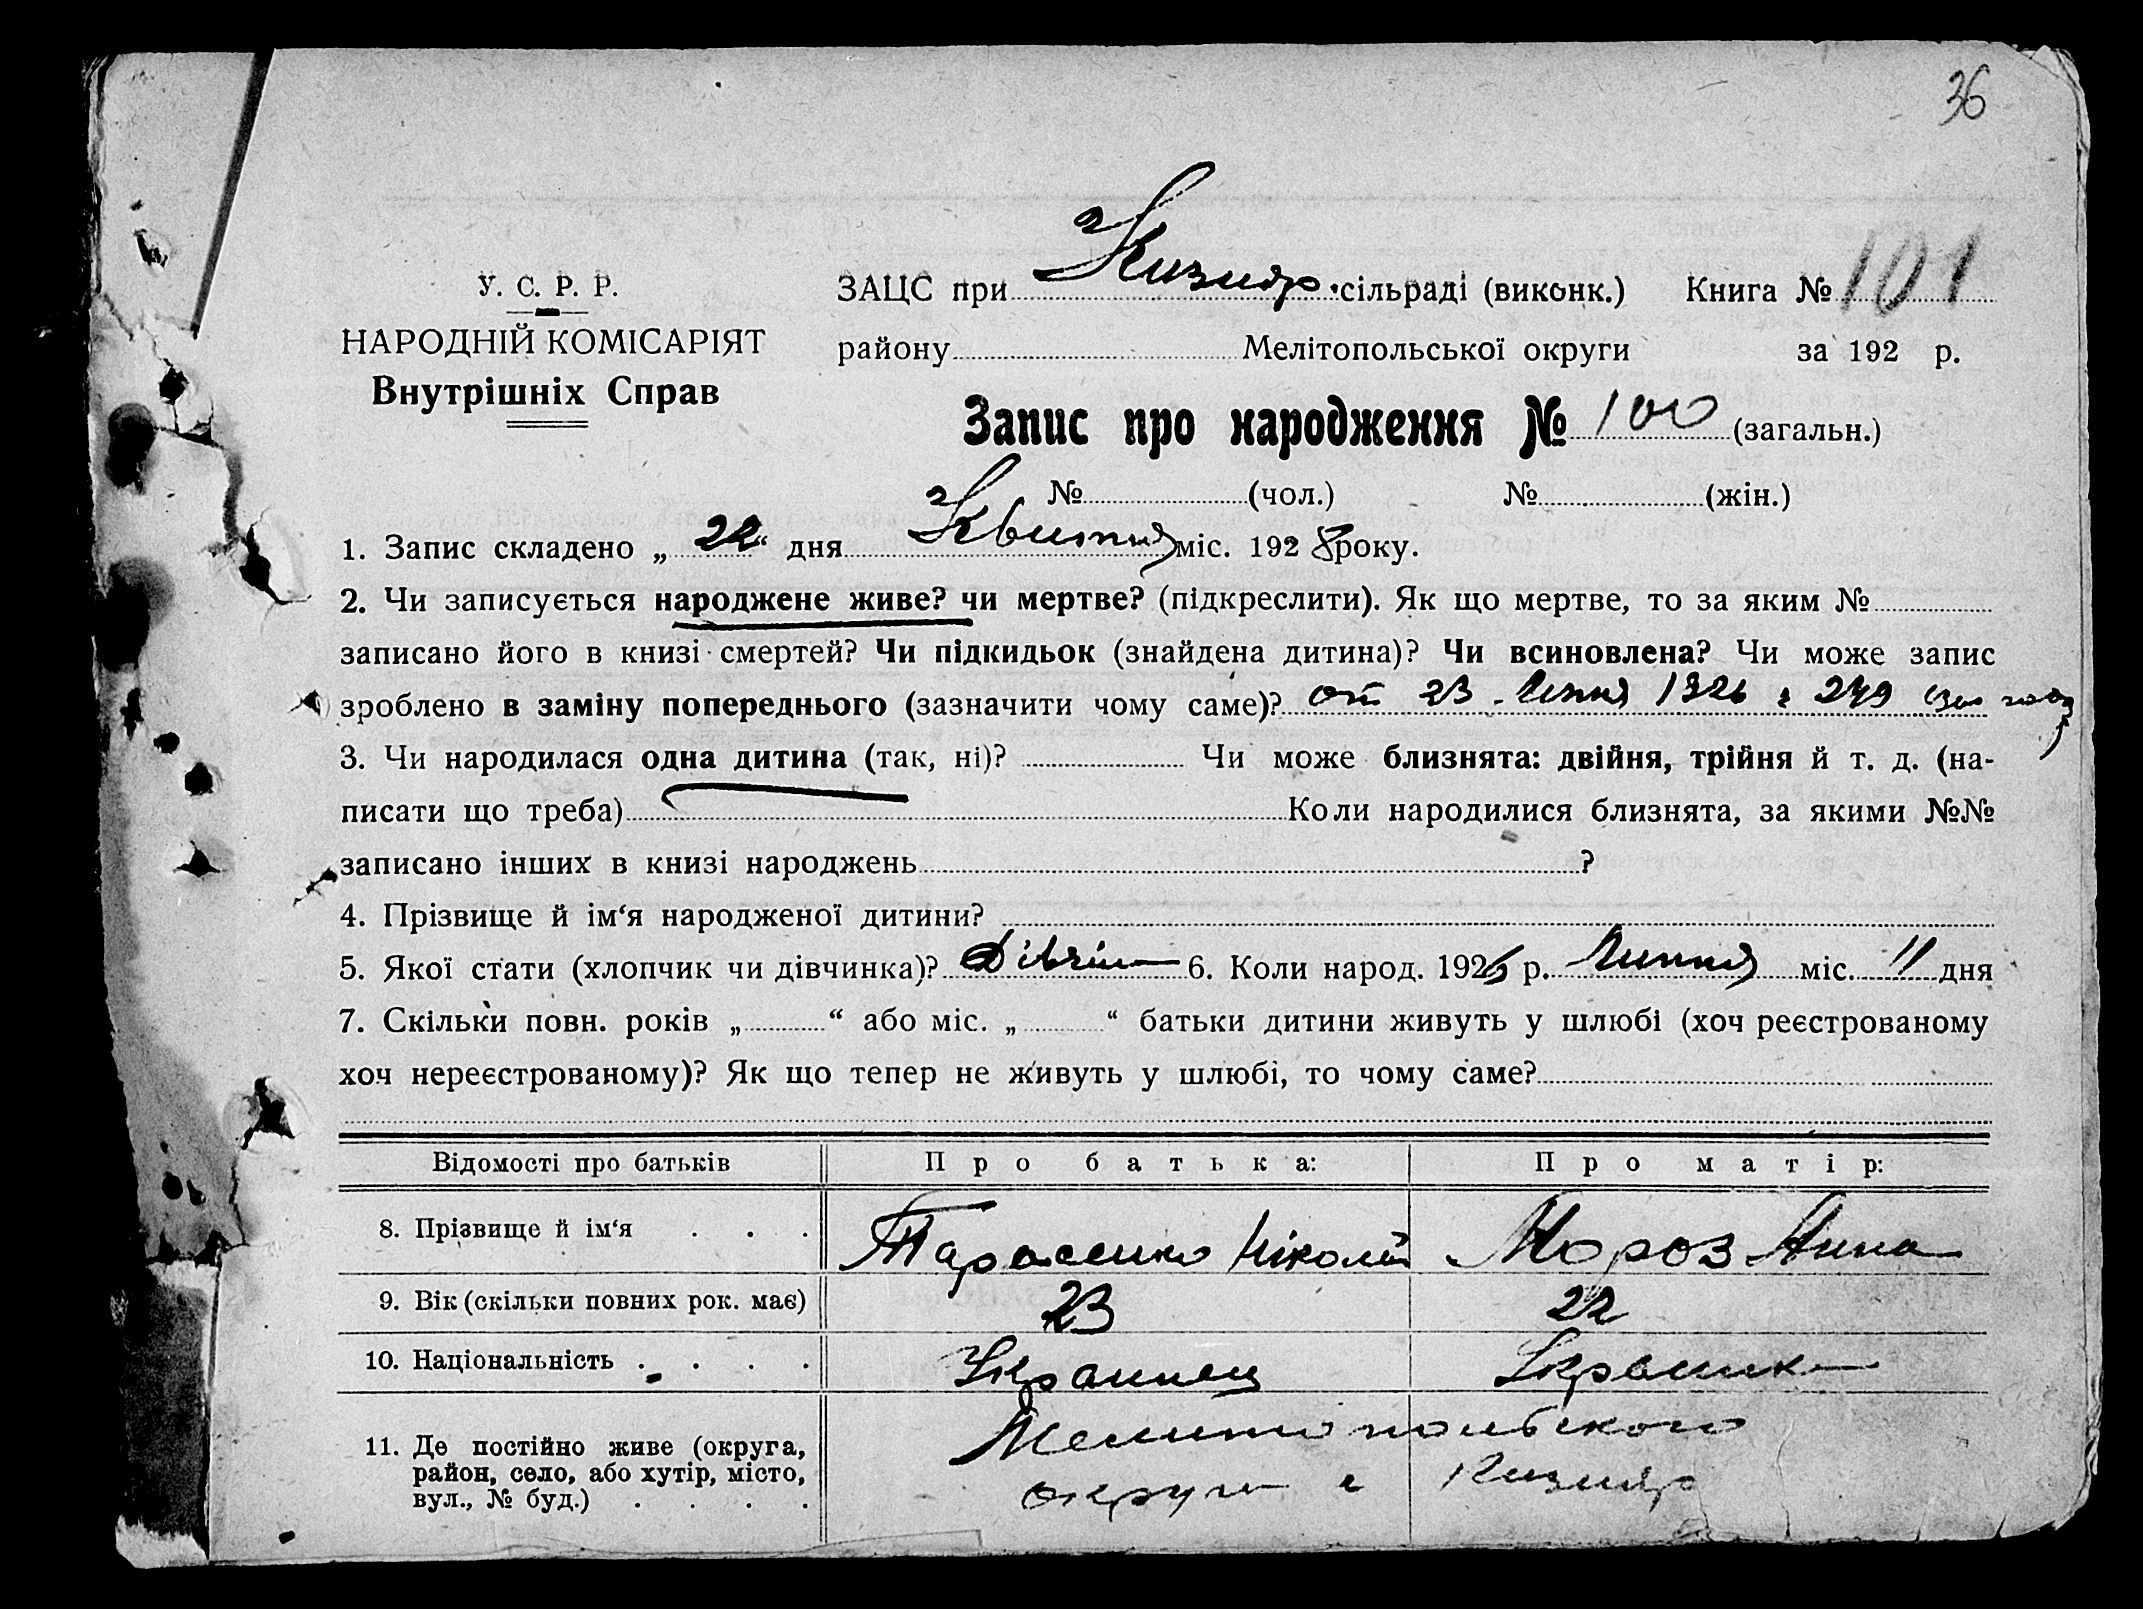 36
У. С. Р. Р.
НАРОДНІЙ КОМІСАРІЯТ
Внутрішніх Справ
ЗАЦС при Кизияр сільраді (виконк.) Книга № 101
району Мелітопольської округи за 192 р.
Запис про народження № 100 (загальн.)
№ (чол.) № (жін.)
1. Запис складено „ 22 “ дня Квитня міс. 192 8 року.
2. Чи записується народжене живе? чи мертве? (підкреслити). Як що мертве, то за яким №
записано його в книзі смертей? Чи підкидьок (знайдена дитина)? Чи всиновлена? Чи може запис
зроблено в заміну попереднього (зазначити чому саме)? от 23 Липня 1926 г 249
3. Чи народилася одна дитина (так, ні)? Чи може близнята: двійня, трійня й т. д. (на-
писати що треба) Коли народилися близнята, за якими №№
записано інших в книзі народжень ?
4. Прізвище й ім‘я народженої дитини?
5. Якої стати (хлопчик чи дівчинка)? Дівчин 6. Коли народ. 1926 р. Липня міс. 11 дня
7. Скільки повн. років „ “ або міс. „ “ батьки дитини живуть у шлюбі (хоч реєстрованому
хоч нереєстрованому)? Як що тепер не живуть у шлюбі, то чому саме?
Відомості про батьків Про батька: Про матір:
8. Прізвище й ім‘я . . . Тарасенко Ніколай Мороз Анна
9. Вік (скільки повних рок. має) 23 22
10. Національність . . . . Украинец Украинка
11. Де постійно живе (округа,
район, село, або хутір, місто,
вул., № буд.) . . . .
Мелитопольского
округи с Кизияр